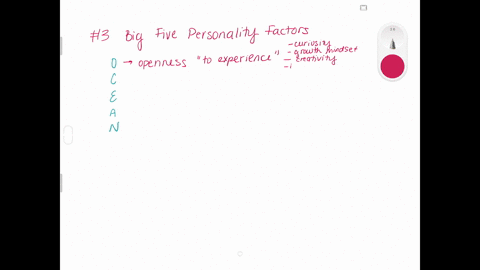 #13 Big Five Personality Factors
- curiosity
- growth mindset
O → openness "to experience"
- creativity
- i
C
E
A
N